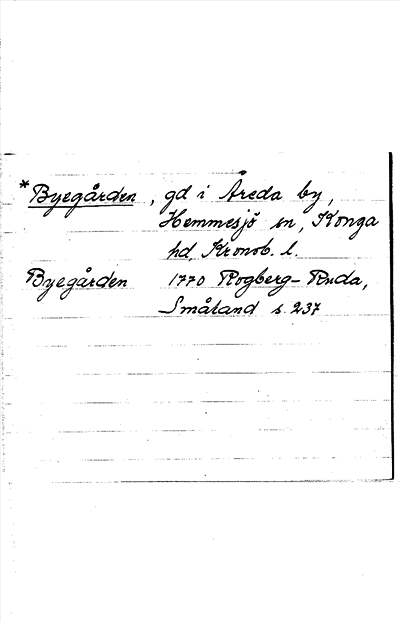 *Byegården, gd i Åreda by,
Hemmesjö sn, Konga
hd, Kronob. l.
Byegården 1770 Rogberg-Ruda,
Småland s. 237